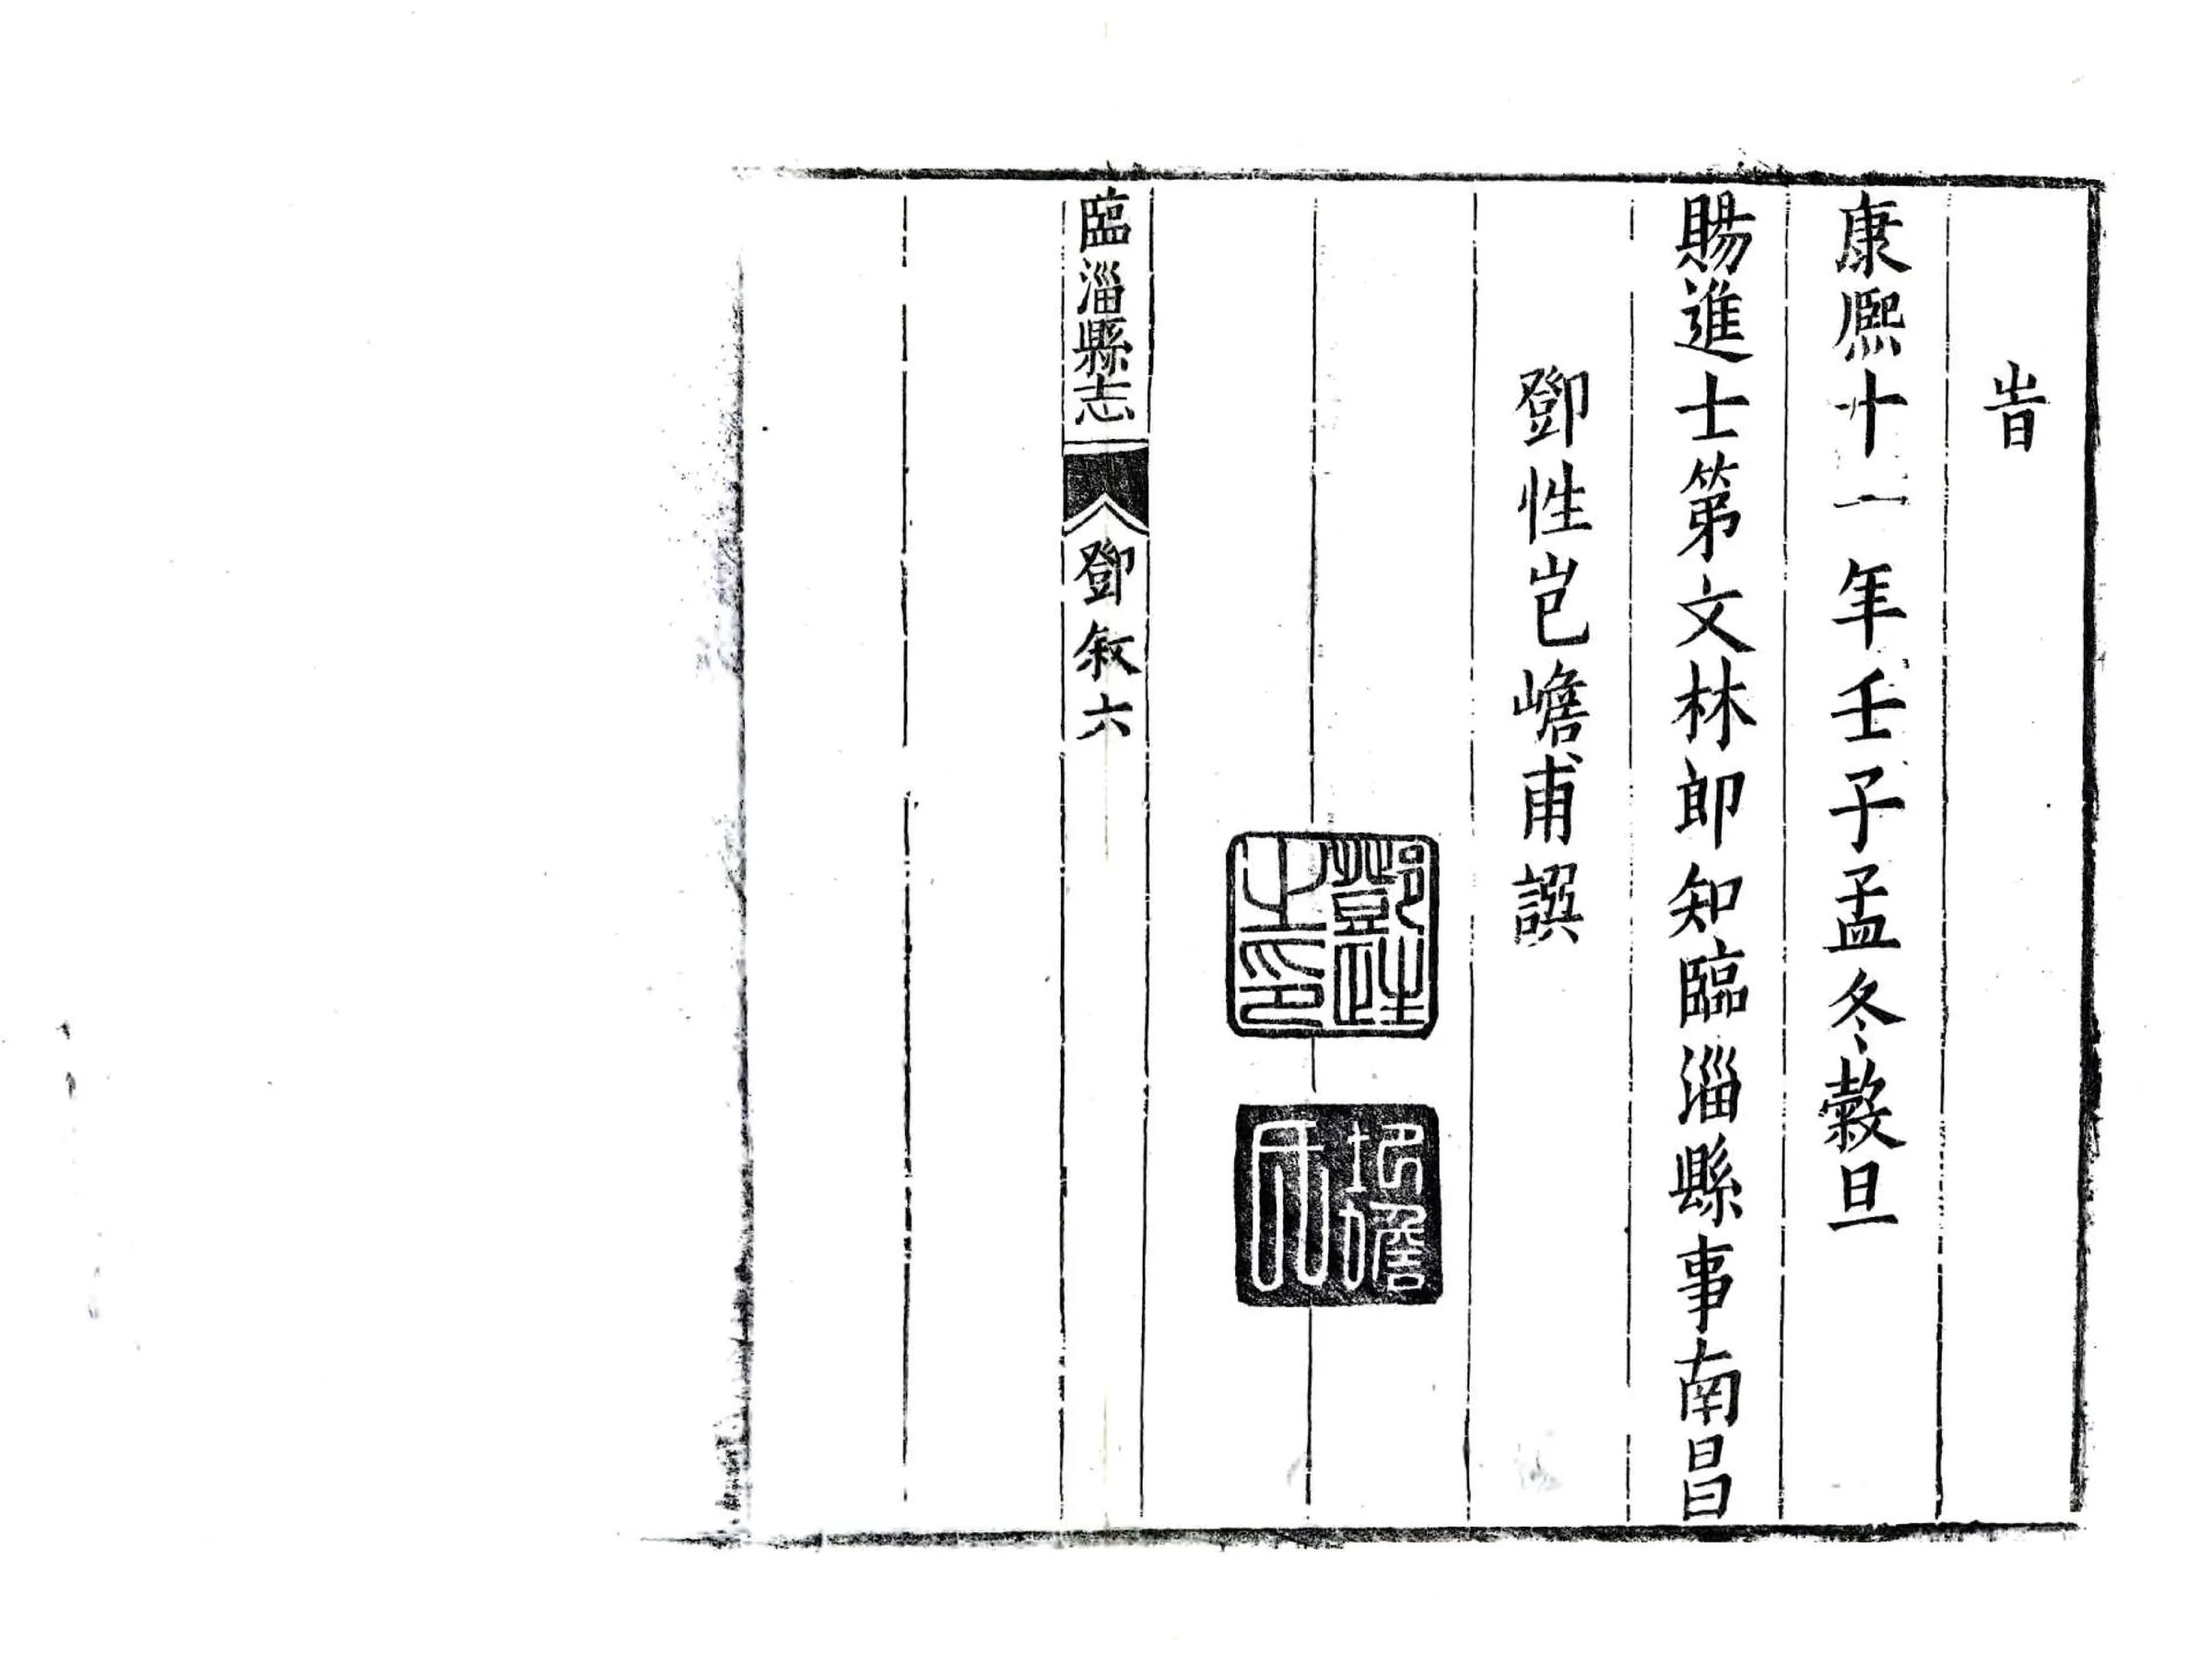 旹
康熙十一年壬子孟冬穀旦
賜進士第文林郎知臨淄縣事南昌
鄧性岜嶦甫譔
鄧性之印
臨淄縣志
鄧敘六